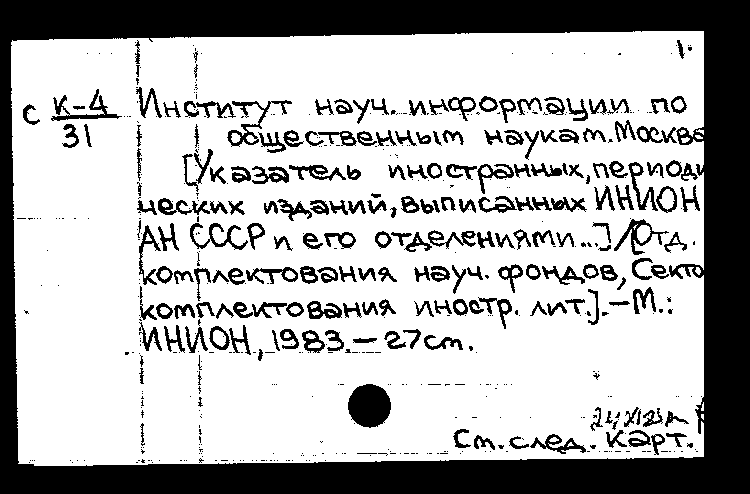 1.
С К-4/31 Институт науч. информации по
общественным наукам. Москва
[Указатель иностранных, периоди
ческих изданий, выписанных ИНИОН
АН СССР и его отделениями...] / [Отд.
комплектования науч. фондов, Секто
комплектования иностр. лит.]. – М.:
ИНИОН, 1983. – 27 см.
См. след. карт.